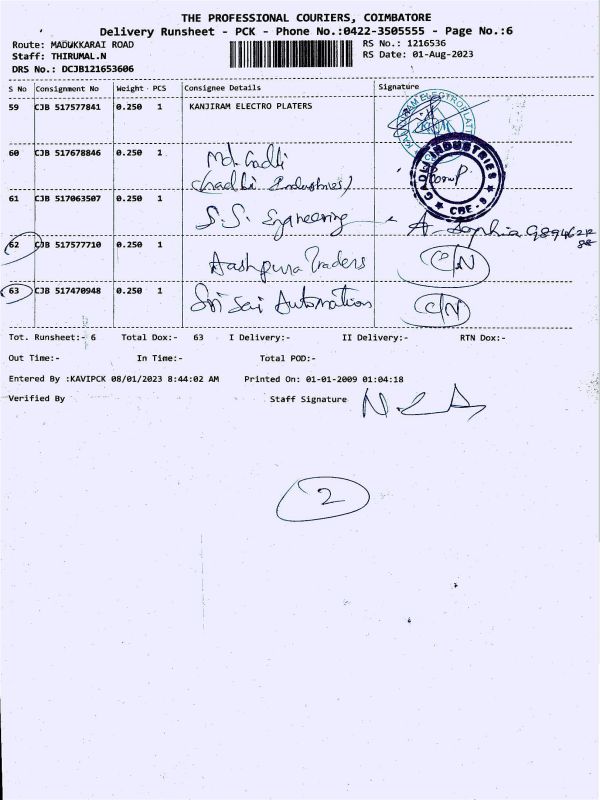 THE PROFESSIONAL COURIERS, COIMBATORE
Delivery Runsheet - PCK - Phone No.:0422-3505555 - Page No.:6
Route: MADUKKARAI ROAD RS No.: 1216536
Staff: THIRUMAL.N RS Date: 01-Aug-2023
DRS No.: DCJB121653606
S No Consignment No Weight PCS Consignee Details Signature
59 CJB 517577841 0.250 1 KANJIRAM ELECTRO PLATERS
KANJIRAM ELECTROPLAT
60 CJB 517678846 0.250 1 Md. Gadhi
Industries)
GADHI INDUSTRIES
★ CBE - 9 ★
61 CJB 517063507 0.250 1 S.S. Engneering A. Sophia
62 CJB 517577710 0.250 1 Aashpura Traders C/N
63 CJB 517470948 0.250 1 Sri Sai Automation C/N
Tot. Runsheet:- 6 Total Dox:- 63 I Delivery:- II Delivery:- RTN Dox:-
Out Time:- In Time:- Total POD:-
Entered By :KAVIPCK 08/01/2023 8:44:02 AM Printed On: 01-01-2009 01:04:18
Verified By Staff Signature
2